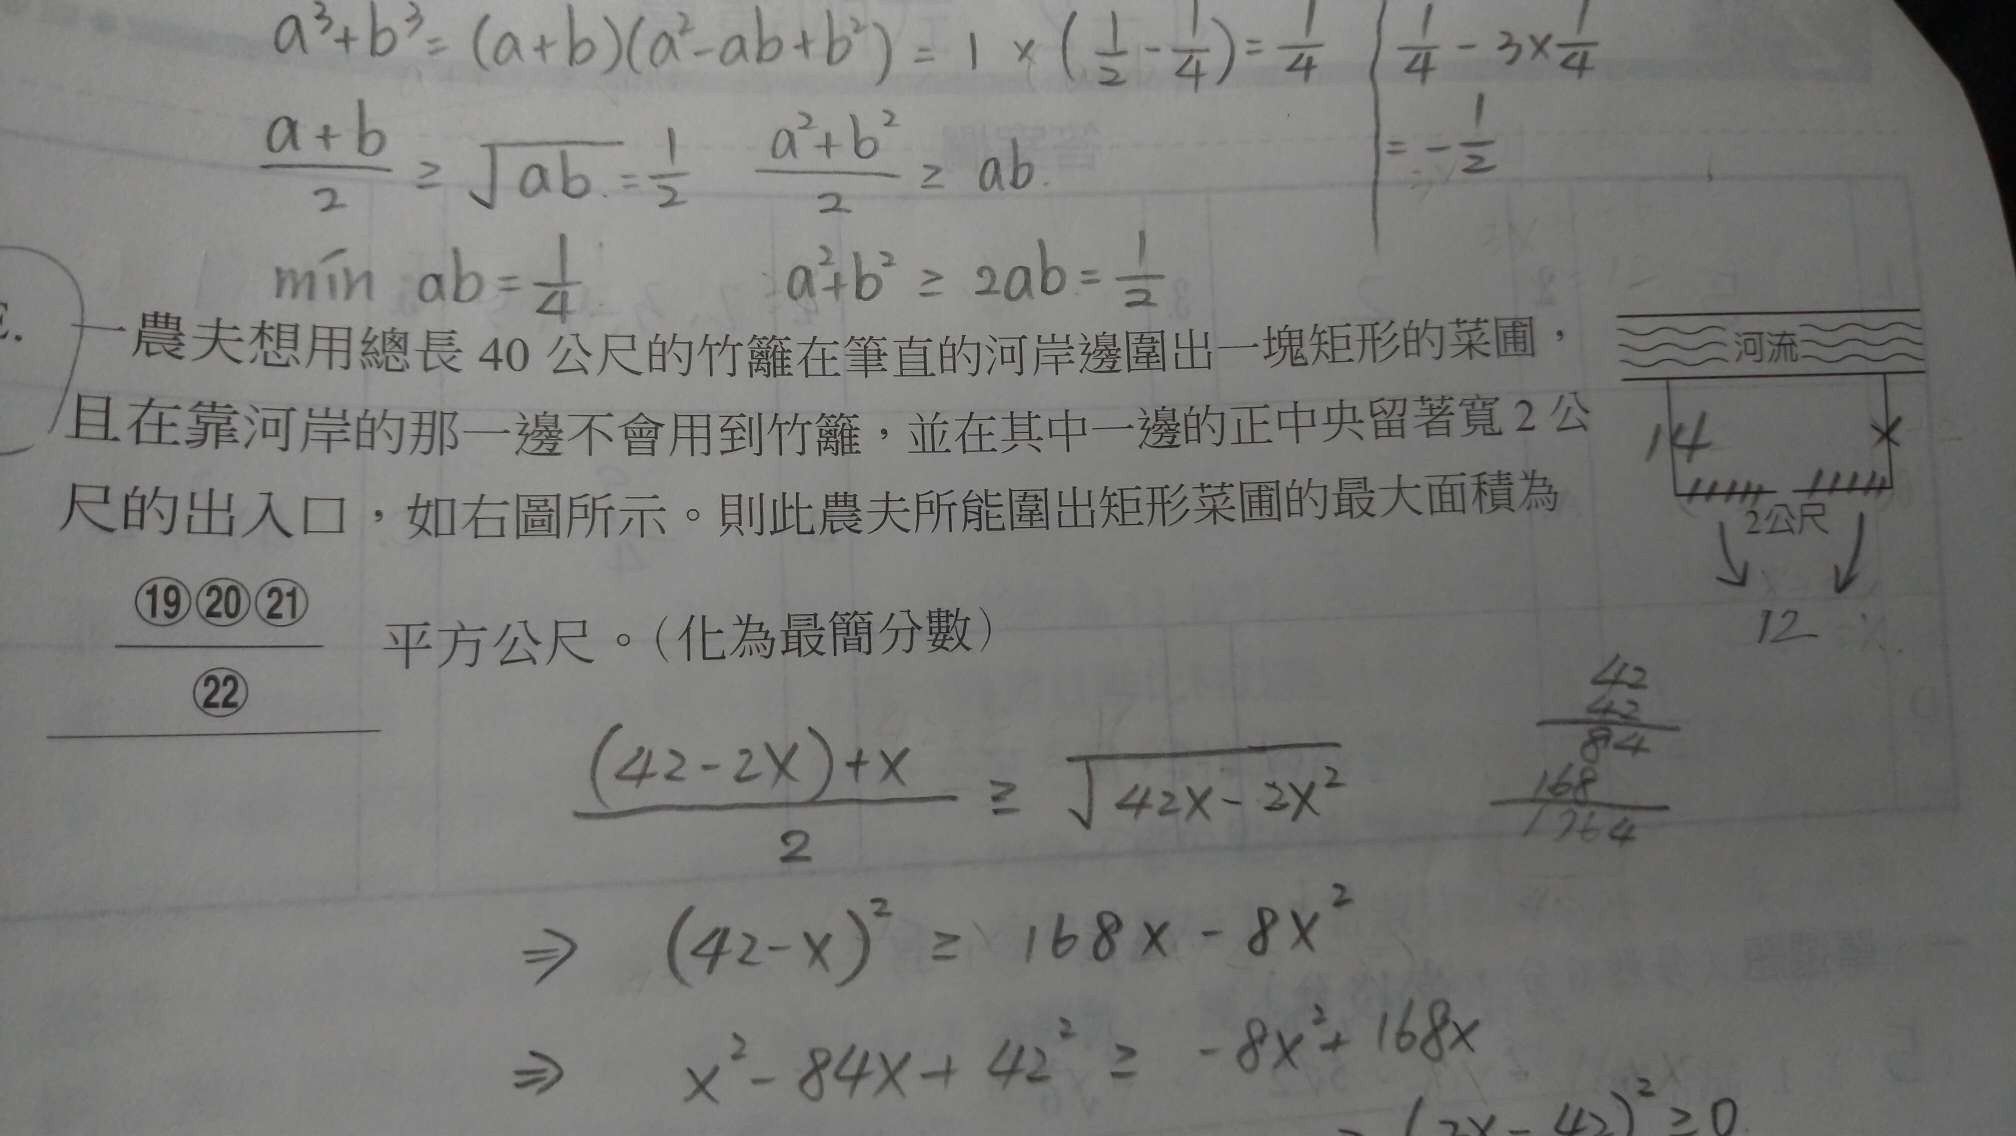 a³+b³=(a+b)(a²-ab+b²)=1×(1/2-1/4)=1/4
1/4-3×1/4
=-1/2
(a+b)/2 ≥ √ab=1/2
(a²+b²)/2 ≥ ab
min ab=1/4
a²+b² ≥ 2ab=1/2
一農夫想用總長 40 公尺的竹籬在筆直的河岸邊圍出一塊矩形的菜圃，
且在靠河岸的那一邊不會用到竹籬，並在其中一邊的正中央留著寬 2 公
尺的出入口，如右圖所示。則此農夫所能圍出矩形菜圃的最大面積為
⑲⑳㉑
㉒
平方公尺。（化為最簡分數）
河流
14
x
2公尺
12
((42-2x)+x)/2 ≥ √(42x-2x²)
42
42
84
168
1764
⇒ (42-x)² ≥ 168x-8x²
⇒ x²-84x+42² ≥ -8x²+168x
(2x-42)²≥0